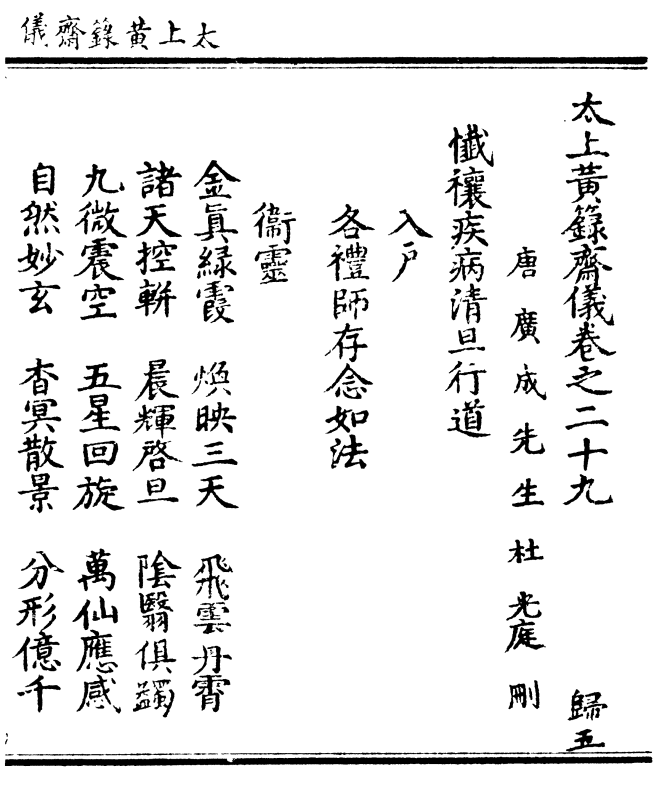 太上黃籙齋儀
太上黃籙齋儀卷之二十九 歸五
唐廣成先生杜光庭刪
懺禳疾病清旦行道
入戶
各禮師存念如法
衞靈
金眞綠霞 煥映三天 飛雲丹霄
諸天控軿 晨輝啓旦 陰翳俱蠲
九微震空 五星回旋 萬仙應感
自然妙玄 杳冥散景 分形億千